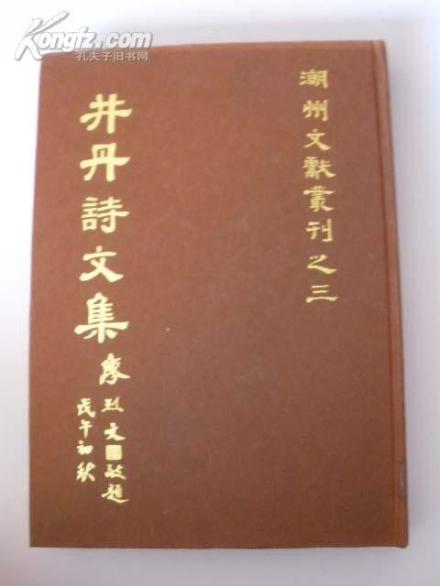 Kongfz.com
孔夫子旧书网
潮州文獻叢刊之三
井丹詩文集
烈文敬題
戊午初秋